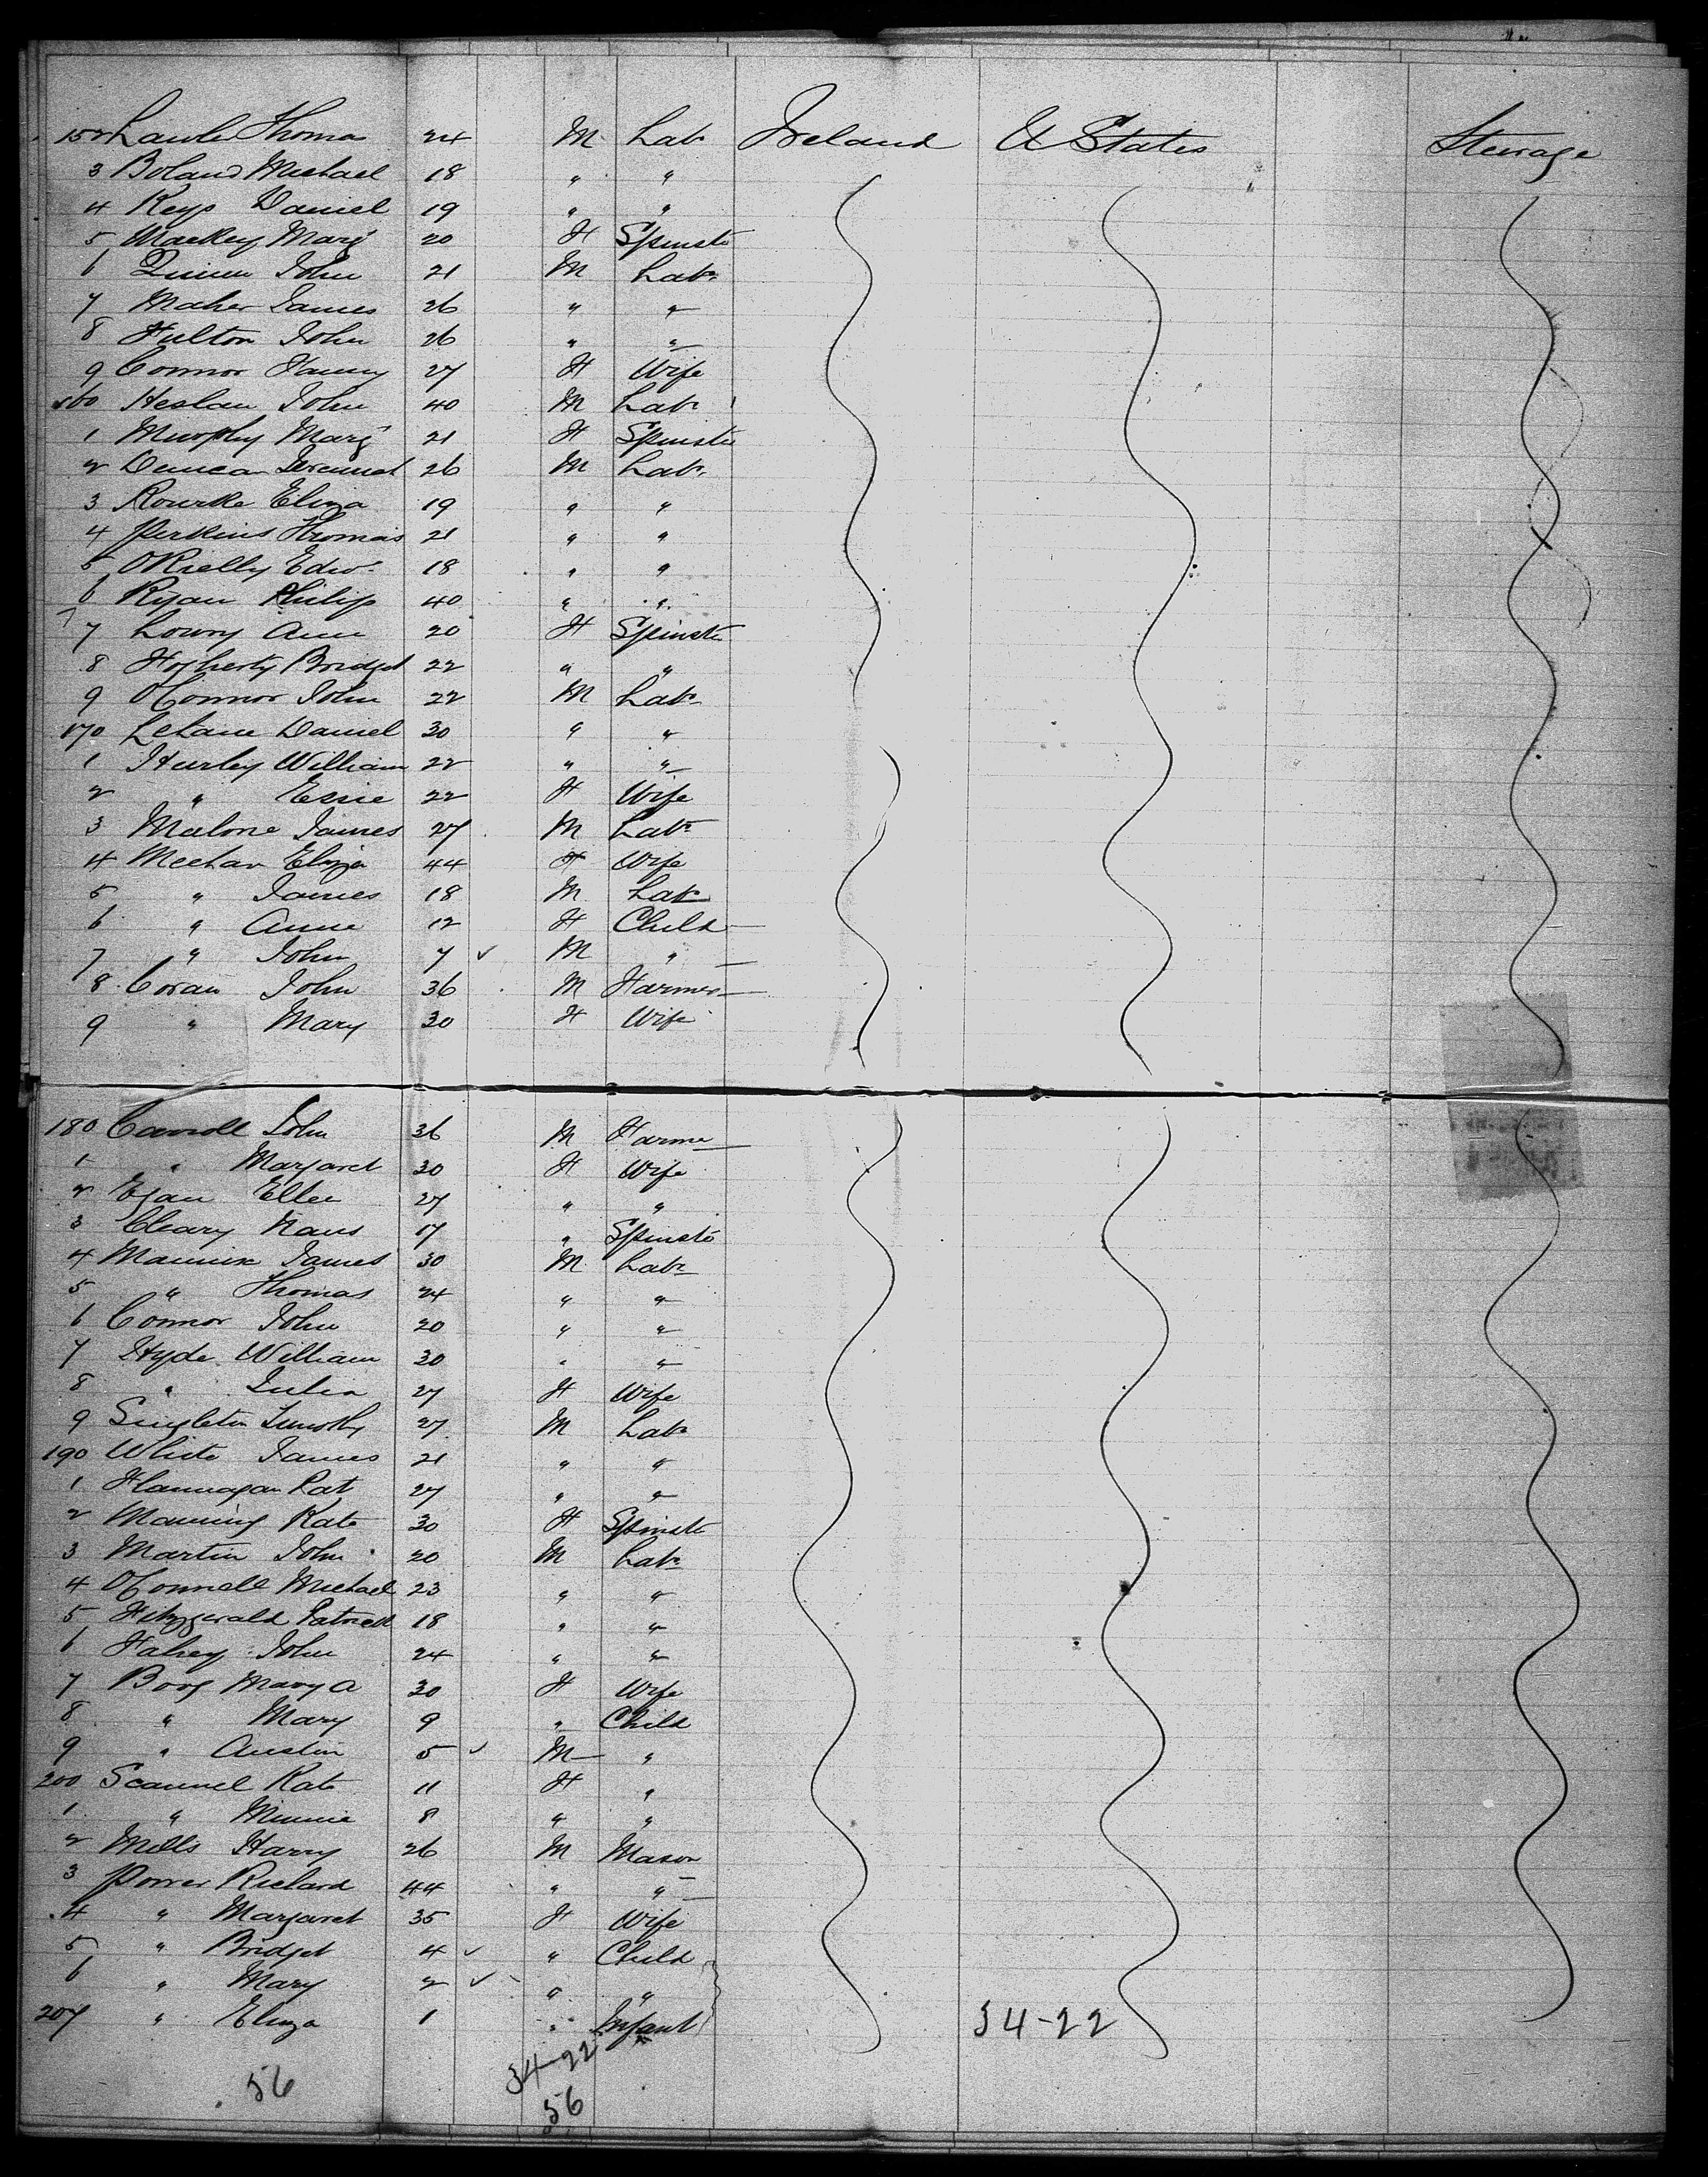 152 Lawler Thomas 24 M Labr Ireland U States Steerage
3 Boland Michael 18 " "
4 Keys Daniel 19 " "
5 Mackey Margt 20 F Spinstr
6 Quinn John 21 M Labr
7 Maher James 26 " "
8 Fulton John 26 " "
9 Connor Fanny 27 F Wife
160 Heslan John 40 M Labr
1 Murphy Margt 21 F Spinstr
2 Duncan 26 M Labr
3 Rourke Eliza 19 " "
4 Perkins Thomas 21 " "
5 ORielly Edwd 18 " "
6 Ryan Philip 40 " "
7 Lowry Ann 20 F Spinstr
8 Fogherty Bridget 22 " "
9 OConnor John 22 M Labr
170 Lehane Daniel 30 " "
1 Hurley William 22 " "
2 " Essie 22 F Wife
3 Malone James 27 M Labr
4 Meehan Eliza 44 F Wife
5 " James 18 M Labr
6 " Anne 12 F Child
7 " John 7 M "
8 Coran John 36 M Farmer
9 " Mary 30 F Wife
180 Carroll John 36 M Farmer
1 " Margaret 30 F Wife
2 Egan Ellen 27 " "
3 Cleary Nans 17 " Spinstr
4 Mannix James 30 M Labr
5 " Thomas 24 " "
6 Connor John 20 " "
7 Hyde William 30 " "
8 " Julia 27 F Wife
9 Singleton Timothy 27 M Labr
190 White James 21 " "
1 Flannagan Pat 27 " "
2 Manning Kate 30 F Spinstr
3 Martin John 20 M Labr
4 OConnell Michael 23 " "
5 Fitzgerald Patrick 18 " "
6 Fahey John 24 " "
7 Borg Mary A 30 F Wife
8 " Mary 9 " Child
9 " Austin 5 M "
200 Scannel Kate 11 F "
1 " Minnie 8 " "
2 Mills Harry 26 M Mason
3 Power Richard 44 " "
4 " Margaret 35 F Wife
5 " Bridget 4 " Child
6 " Mary 2 " "
207 " Eliza 1 " Infant 34-22
34-22
56 56